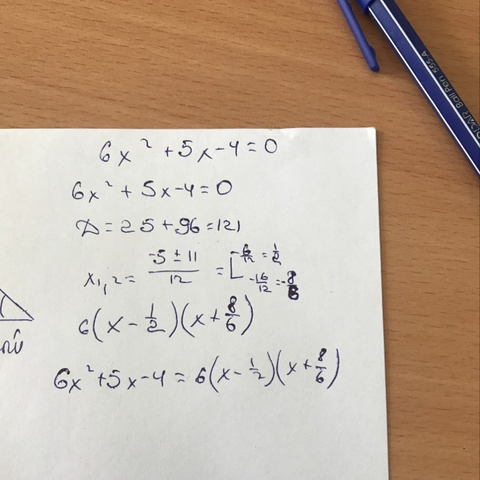 6x² + 5x - 4 = 0
6x² + 5x - 4 = 0
D = 25 + 96 = 121
x₁,₂ = (-5 ± 11)/12 = [ 6/12 = 1/2
-16/12 = -8/6
6(x - 1/2)(x + 8/6)
6x² + 5x - 4 = 6(x - 1/2)(x + 8/6)
Ball Pen 555-A